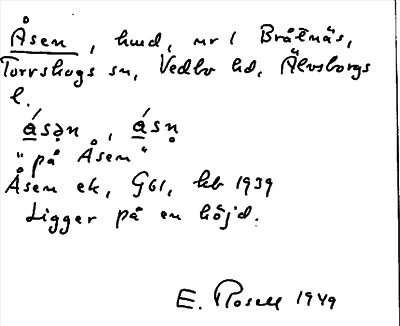 Åsen, hmd, nr 1 Bråtnäs,
Torrskogs sn, Vedbo hd, Älvsborgs
l.
ásən, ásn̥
"på Åsen"
Åsen ek, G61, kb 1939
Ligger på en höjd.
E. Rosell 1949